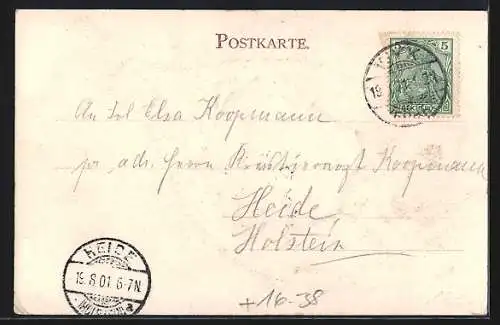 POSTKARTE.
5
19
An Frl Elsa Koopmann
pr. adr. Herrn Koopmann
Heide
Holstein
HEIDE
19.8.01 6-7N
+16-38